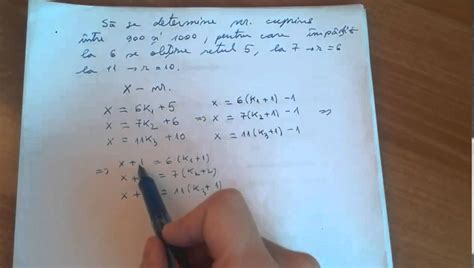 Să se determine nr. cuprins
între 900 și 1000, pentru care împărțit
la 6 se obține restul 5, la 7 → r = 6
la 11 → r = 10.
X – nr.
x = 6k₁ + 5 x = 6(k₁+1) – 1
x = 7k₂ + 6 ⇒ x = 7(k₂+1) – 1 ⇒
x = 11k₃ + 10 x = 11(k₃+1) – 1
⇒ x + 1 = 6(k₁+1)
x + = 7(k₂+2)
x + = 11(k₃+1)